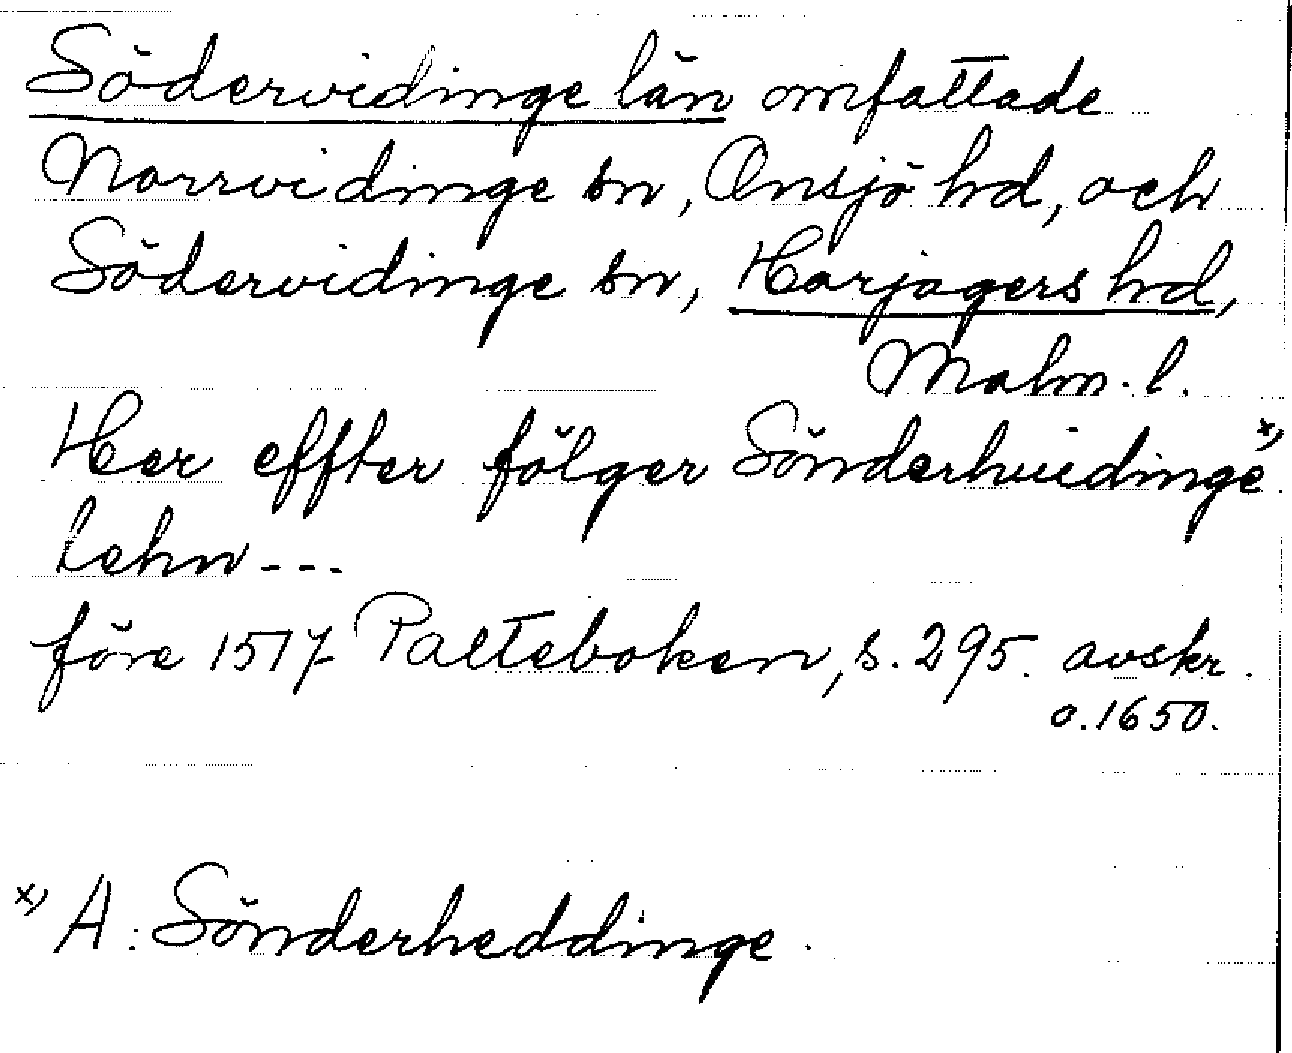 Södervidinge län omfattade
Norrvidinge sn, Onsjö hd, och
Södervidinge sn, Harjagers hd,
Malm. l.
Her effter fölger Sönderhuidinge x)
lehn ---
före 1517 Palteboken, s. 295. avskr.
o. 1650.
x) A: Sönderheddinge.